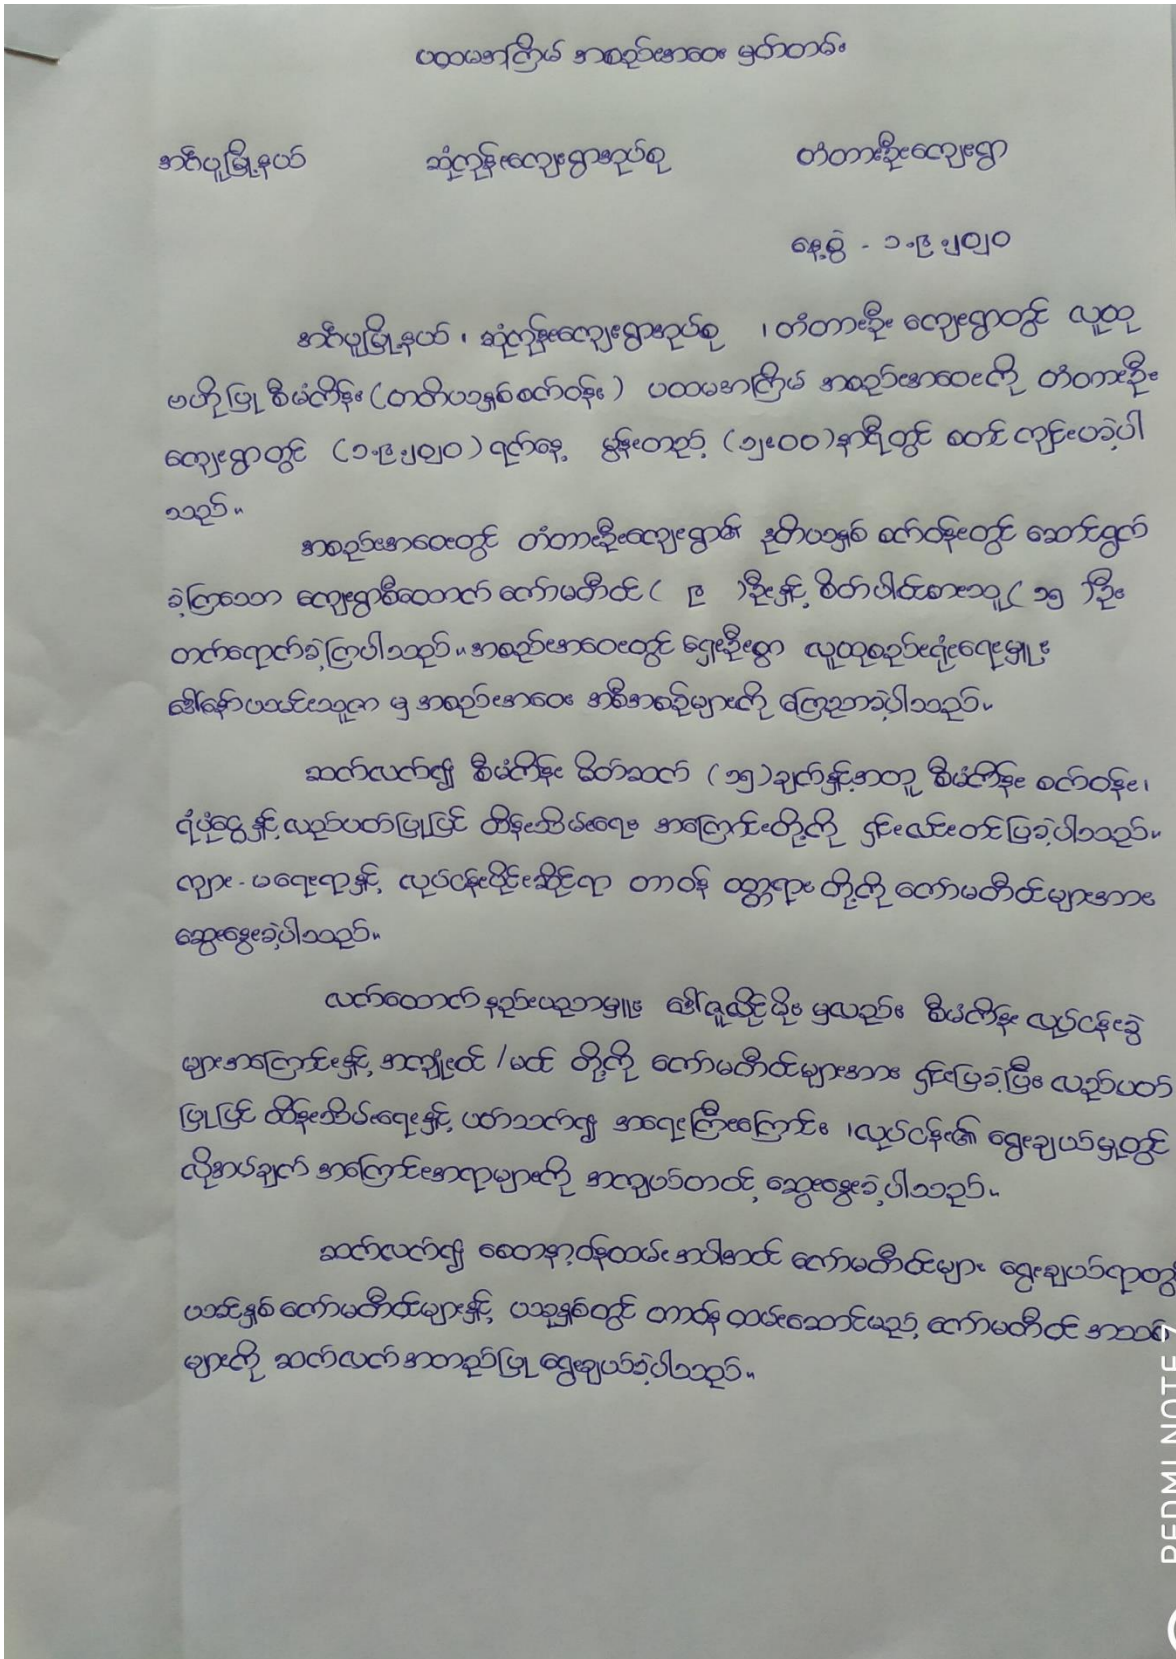 ပထမအကြိမ် အစည်းအဝေး မှတ်တမ်း
အင်္ဂပူမြို့နယ် ဆုံကုန်းကျေးရွာအုပ်စု တံတားဦးကျေးရွာ
နေ့စွဲ - ၁.၉.၂၀၂၀
အင်္ဂပူမြို့နယ် ၊ ဆုံကုန်းကျေးရွာအုပ်စု ၊ တံတားဦး ကျေးရွာတွင် လူထု
ဗဟိုပြု စီမံကိန်း (တတိယနှစ်စက်ဝန်း) ပထမအကြိမ် အစည်းအဝေးကို တံတားဦး
ကျေးရွာတွင် (၁.၉.၂၀၂၀) ရက်နေ့ မွန်းတည့် (၁၂း၀၀) နာရီတွင် စတင် ကျင်းပခဲ့ပါ
သည်။
အစည်းအဝေးတွင် တံတားဦးကျေးရွာ၏ ဒုတိယနှစ် စက်ဝန်းတွင် ဆောင်ရွက်
ခဲ့ကြသော ကျေးရွာစီထောက် ကော်မတီဝင် ( ၉ )ဦးနှင့် စိတ်ပါဝင်စားသူ ( ၁၅ )ဦး
တက်ရောက်ခဲ့ကြပါသည်။ အစည်းအဝေးတွင် ရှေးဦးစွာ လူထုစည်းရုံးရေးမှူး
ဒေါ်နော်ယမင်းသူဇာ မှ အစည်းအဝေး အစီအစဉ်များကို ကြေညာခဲ့ပါသည်။
ဆက်လက်၍ စီမံကိန်း မိတ်ဆက် (၁၅)ချက်နှင့်အတူ စီမံကိန်း စက်ဝန်း၊
ရံပုံငွေနှင့် လည်ပတ်ပြုပြင် ထိန်းသိမ်းရေး အကြောင်းတို့ကို ရှင်းလင်းတင်ပြခဲ့ပါသည်။
ကျား - မရေးရာနှင့် လုပ်ငန်းပိုင်းဆိုင်ရာ တာဝန် ဝတ္တရား တို့ကို ကော်မတီဝင်များအား
ဆွေးနွေးခဲ့ပါသည်။
လက်ထောက် နည်းပညာမှူး ဒေါ်ဇူလိုင်မိုး မှလည်း စီမံကိန်း လုပ်ငန်းခွဲ
များအကြောင်းနှင့် အကျုံးဝင် / မဝင် တို့ကို ကော်မတီဝင်များအား ရှင်းပြခဲ့ပြီး လည်ပတ်
ပြုပြင် ထိန်းသိမ်းရေးနှင့် ပတ်သက်၍ အရေးကြီးကြောင်း ၊လုပ်ငန်း၏ ရွေးချယ်မှုတွင်
လိုအပ်ချက် အကြောင်းအရာများကို အကျယ်တဝင့် ဆွေးနွေးခဲ့ပါသည်။
ဆက်လက်၍ စေတနာ့ဝန်ထမ်း အပါအဝင် ကော်မတီဝင်များ ရွေးချယ်ရာတွ
ယခင်နှစ် ကော်မတီဝင်များနှင့် ယခုနှစ်တွင် တာဝန် ထမ်းဆောင်မည့် ကော်မတီဝင် အသစ်
များကို ဆက်လက် အတည်ပြု ရွေးချယ်ခဲ့ပါသည်။
REDMI NOTE 7